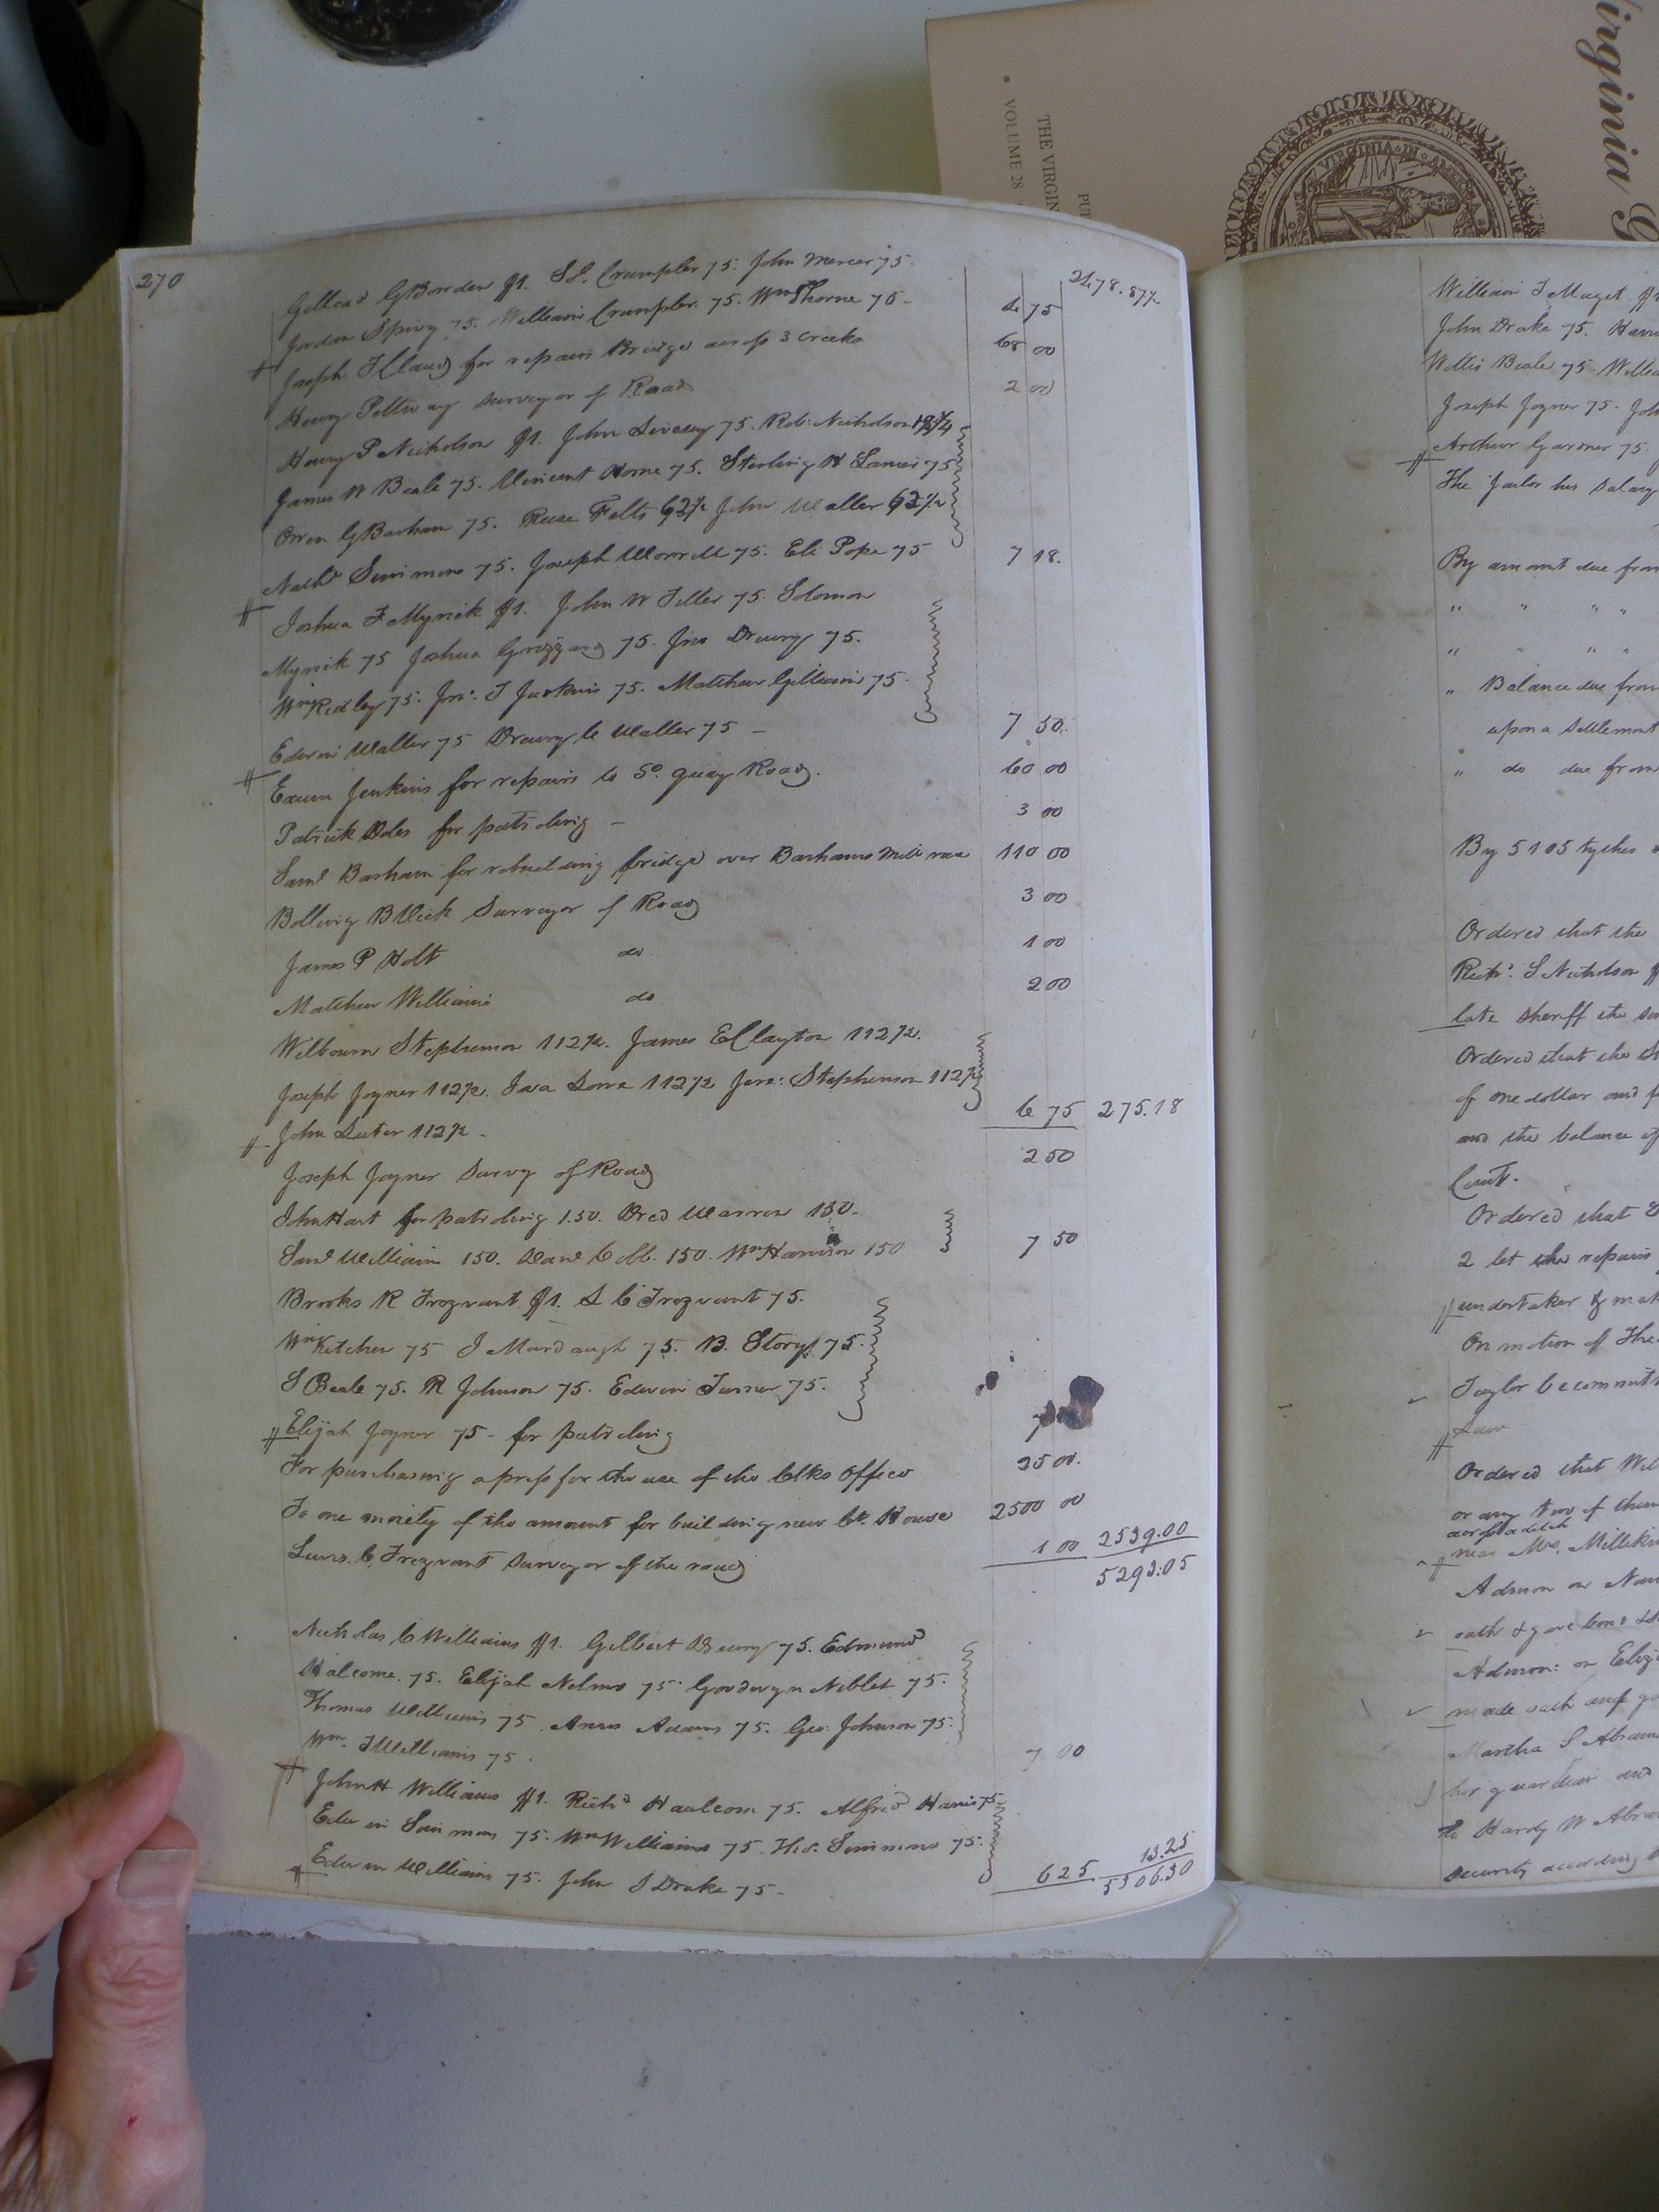 Virginia
THE VIRGIN
VOLUME 28
VIRGINIA IN
270
2478.87½
Gillead G Bowden $1. Sol. Crumpler 75. John Mercer 75.
Jordan Spivy 75. William Crumpler. 75. Wm Thorne 75 - 4 75
Joseph T Claud for repairs Bridge across 3 creeks 68 00
Henry Pettway surveyor of Road 2 00
Henry P Nicholson $1. John Livesay 75. Rob: Nicholson
James W Beale 75. Vincent Horne 75. Sterling H Lanier 75
Owen G Barham 75. Rease Felts 62½ John Waller 62½
Nathl Simmons 75. Joseph Worrell 75. Eli Pope 75 7 18.
Joshua F Myrick $1. John W Teller 75. Solomon
Myrick 75 Joshua Grizzard 75. Jno Drewry 75.
Wm Ridley 75. Jno. T Judkins 75. Matthew Gilliam 75.
Edwin Waller 75 Drewry C Waller 75 - 7 50.
Exum Jenkins for repairs to So. quay Road. 60 00
Patrick Doles for patroling - 3 00
Saml Barham for rebuilding bridge over Barhams Mill race 110 00
Bolling B Vick Surveyor of Road 3 00
James P Holt do 1 00
Matthew Williams do 2 00
Wilbourn Stephenson 112½. James E Clayton 112½.
Joseph Joyner 112½. Ira Lowe 112½ Jere: Stephenson 112½
John Luter 112½ - 6 75 275.18
Joseph Joyner Survy of Road 2 50
John Hart for patroling 1.50. Bred Warren 150.
Saml William 150. Danl Cobb. 150. Wm Harrison 150 7 50
Brooks R Trezvant. $1. L C Trezvant 75.
Wm Kitchen 75 J Murdaugh 75. B. Story 75.
S Beale 75. R Johnson 75. Edwin Turner 75.
Elijah Joyner 75 - for patroling 7
For purchasing a press for the use of the Clks Office 25 00.
To one moiety of the amount for building new Ct. House 2500 00
Lewis C. Trezvant Surveyor of the road 1 00 2539.00
5293.05
Nicholas C Williams $1. Gilbert Drewry 75. Edmund
Halcome. 75. Elijah Nelms 75. Goodwyn Niblet 75.
Thomas Williams 75. Amos Adams 75. Geo: Johnson 75.
Wm. J Williams 75. 7 00
John H Williams $1. Richd Haulcom 75. Alfred Harris 75.
Edwin Simmons 75. Wm Williams 75. Tho: Simmons 75.
Edwin Williams 75. John S Drake 75 - 6 25 13.25
5306.30
William T Maget $1
John Drake 75.
Willis Beale 75. Willia
Joseph Joyner 75. Joh
Arthur Gardner 75
The Jailor his Salary
By amount due from
" " " "
" " " "
" Balance due from
upon a Settlement
" do due from
By 5105 tythes
Ordered that the
Richd. S Nicholson
late Sheriff the
Ordered that the
of one dollar and
and the balance of
Court.
Ordered that
2 let the repairs
undertaker & mak
On motion of The
Taylor be committ
Law
Ordered that Wil
or any two of them
across a ditch
near Mrs. Milliken
Admon on Nan
oath & gave bond
Admon: on Eliz
made oath and g
Martha S Abram
her guardian and
to Hardy W Abra
security according